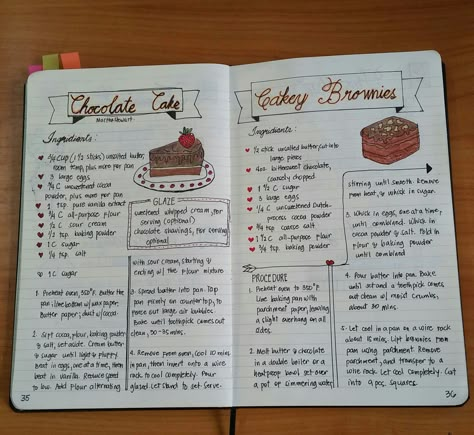 Chocolate Cake
Martha Stewart
Ingredients:
3/4 cup (1 1/2 sticks) unsalted butter,
room temp, plus more for pan
3 large eggs
3/4 C unsweetened cocoa
powder, plus more for pan
1 tsp. pure vanilla extract
3/4 C all-purpose flour
1/2 C sour cream
1/2 tsp baking powder
1 C sugar
1/4 tsp salt
1C sugar
GLAZE
sweetened whipped cream, for
serving (optional)
chocolate shavings, for serving
optional
1. Preheat oven 350°F. Butter the
pan; line bottom w/wax paper.
Butter paper; dust w/cocoa
2. Sift cocoa, flour, baking powder
& salt, set aside. Cream butter
& sugar until light & fluffy
Beat in eggs, one at a time, then
beat in vanilla. Reduce speed
to low. Add flour alternating
with sour cream, starting &
ending w/ the flour mixture
3. Spread batter into pan. Tap
pan firmly on countertop, to
force out large air bubbles
Bake until toothpick comes out
clean, 30-35 mins.
4. Remove from oven, cool 10 mins
in pan, then invert onto a wire
rack to cool completely. Pour
glazed. Let stand to set. Serve.
35
Cakey Brownies
Ingredients:
1/2 stick unsalted butter, cut into
large pieces
4oz bittersweet chocolate,
coarsely chopped
1 1/2 C sugar
3 large eggs
1/4 C unsweetened Dutch-
process cocoa powder
3/4 tsp coarse salt
1 1/2 C all-purpose flour
3/4 tsp baking powder
PROCEDURE
1. Preheat oven to 350°F
Line baking pan with
parchment paper, leaving
a slight overhang on all
sides.
2. Melt butter & chocolate
in a double boiler or a
heatproof bowl set over
a pot of simmering water
stirring until smooth. Remove
from heat, & whisk in sugar
3. Whisk in eggs, one at a time,
until combined. Whisk in
cocoa powder & salt. Fold in
flour & baking powder
until combined
4. Pour batter into pan. Bake
until set and a toothpick comes
out clean w/ moist crumbs;
about 30 mins.
5. Let cool in a pan on a wire rack
about 15 mins. Lift brownies from
pan using parchment. Remove
parchment, and transfer to a
wire rack. Let cool completely. Cut
into 9 pcs. squares.
36